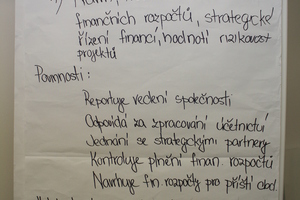 finančních rozpočtů, strategické
řízení financí, hodnotí rizikovost
projektů
Povinnosti:
Reportuje vedení společnosti
Odpovídá za zpracování účetnictví
Jednání se strategickými partnery
Kontroluje plnění finan. rozpočtů
Navrhuje fin. rozpočty pro příští obd.